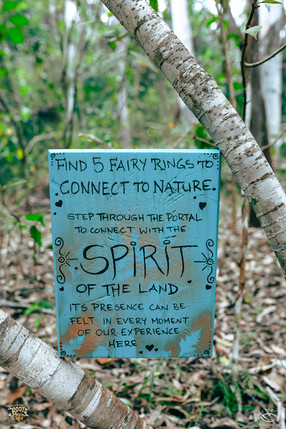 FIND 5 FAIRY RINGS TO
CONNECT TO NATURE.
STEP THROUGH THE PORTAL
TO CONNECT WITH THE
SPIRIT
OF THE LAND
ITS PRESENCE CAN BE
FELT IN EVERY MOMENT
OF OUR EXPERIENCE
HERE